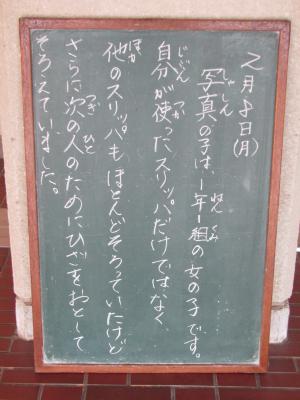 2月8日(月)
写真の子は、1年1組の女の子です。
自分が使ったスリッパだけではなく、
他のスリッパもほとんどそろっていたけど
さらに次の人のためにひざをおとして
そろえていました。